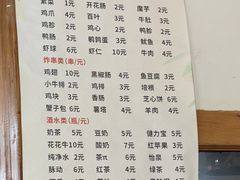 素菜 1元 开花肠 2元 魔芋 2元
鸡爪 4元 百叶 3元 牛肚 3元
鸡胗 2元 鸡心 2元 鸭胗 2元
鸭肠 2元 鹌鹑蛋 3元 鱿鱼 4元
虾球 6元 虾仁 10元 牛肉 4元
炸串类(串/元)
鸡翅 10元 黑椒肠 4元 鱼豆腐 3元
小牛排 2元 鸡排 3元 培根 2元
鸡块 3元 香肠 3元 芝心饼 6元
蟹子包 6元 薯塔 4元 羊肉 4元
酒水类(瓶/元)
奶茶 5元 豆奶 5元 健力宝 5元
花花牛10元 酸奶 7元 红苹果 3元
纯净水 2元 茶π 6元 怡泉 5元
脉动 6元 红茶 4元 绿茶 4元